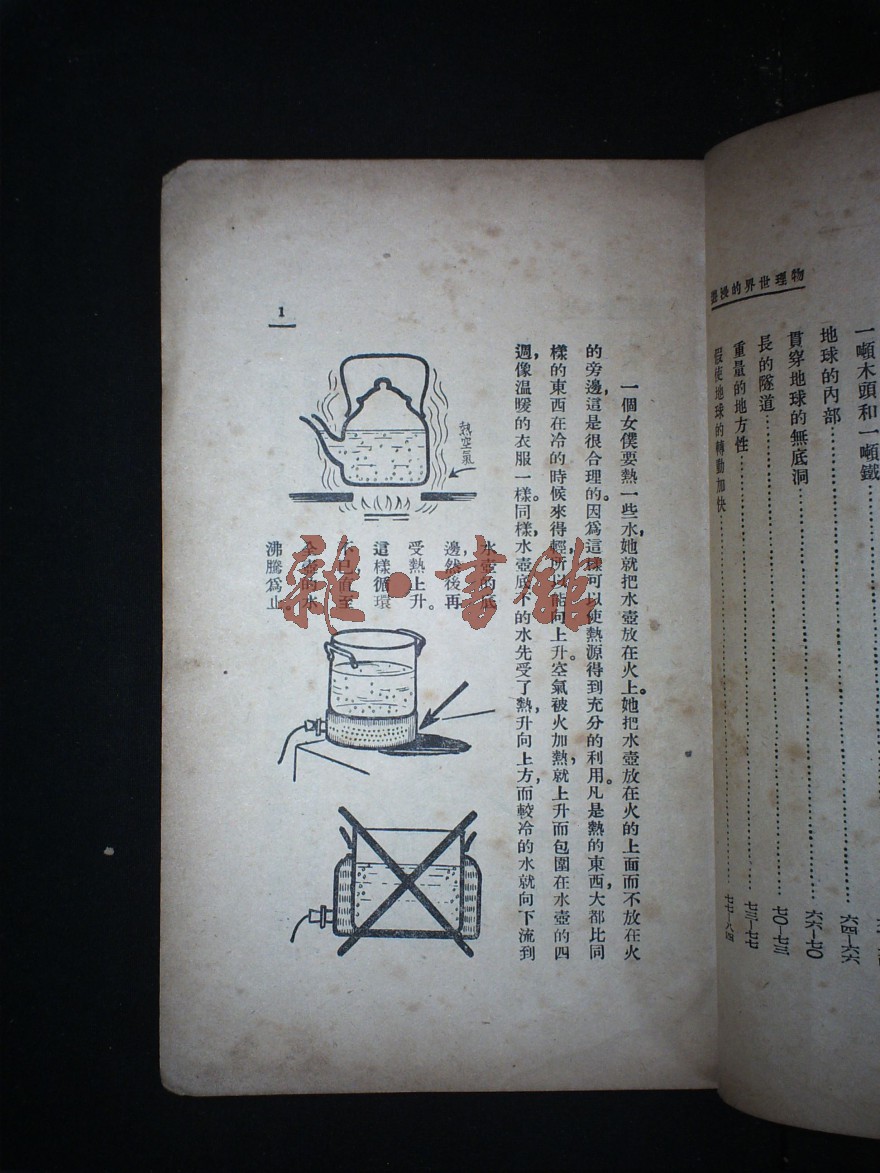 物理世界的漫遊
一噸木頭和一噸鐵
地球的內部 六四—六六
貫穿地球的無底洞 六六—七〇
長的隧道 七〇—七三
重量的地方性 七三—七七
假使地球的轉動加快 七七—八四
一個女僕要熱一些水，她就把水壺放在火上。她把水壺放在火的上面而不放在火
的旁邊，這是很合理的。因爲這樣可以使熱源得到充分的利用。凡是熱的東西，大都比同
樣的東西在冷的時候來得輕，所以能向上升。空氣被火加熱，就上升而包圍在水壺的四
週，像温暖的衣服一樣。同樣，水壺底下的水先受了熱，升向上方，而較冷的水就向下流到
水壺的底
邊，然後再
受熱上升。
這樣循環
不已，直至
全壺的水
沸騰爲止。
熱空氣
1
雜·書館